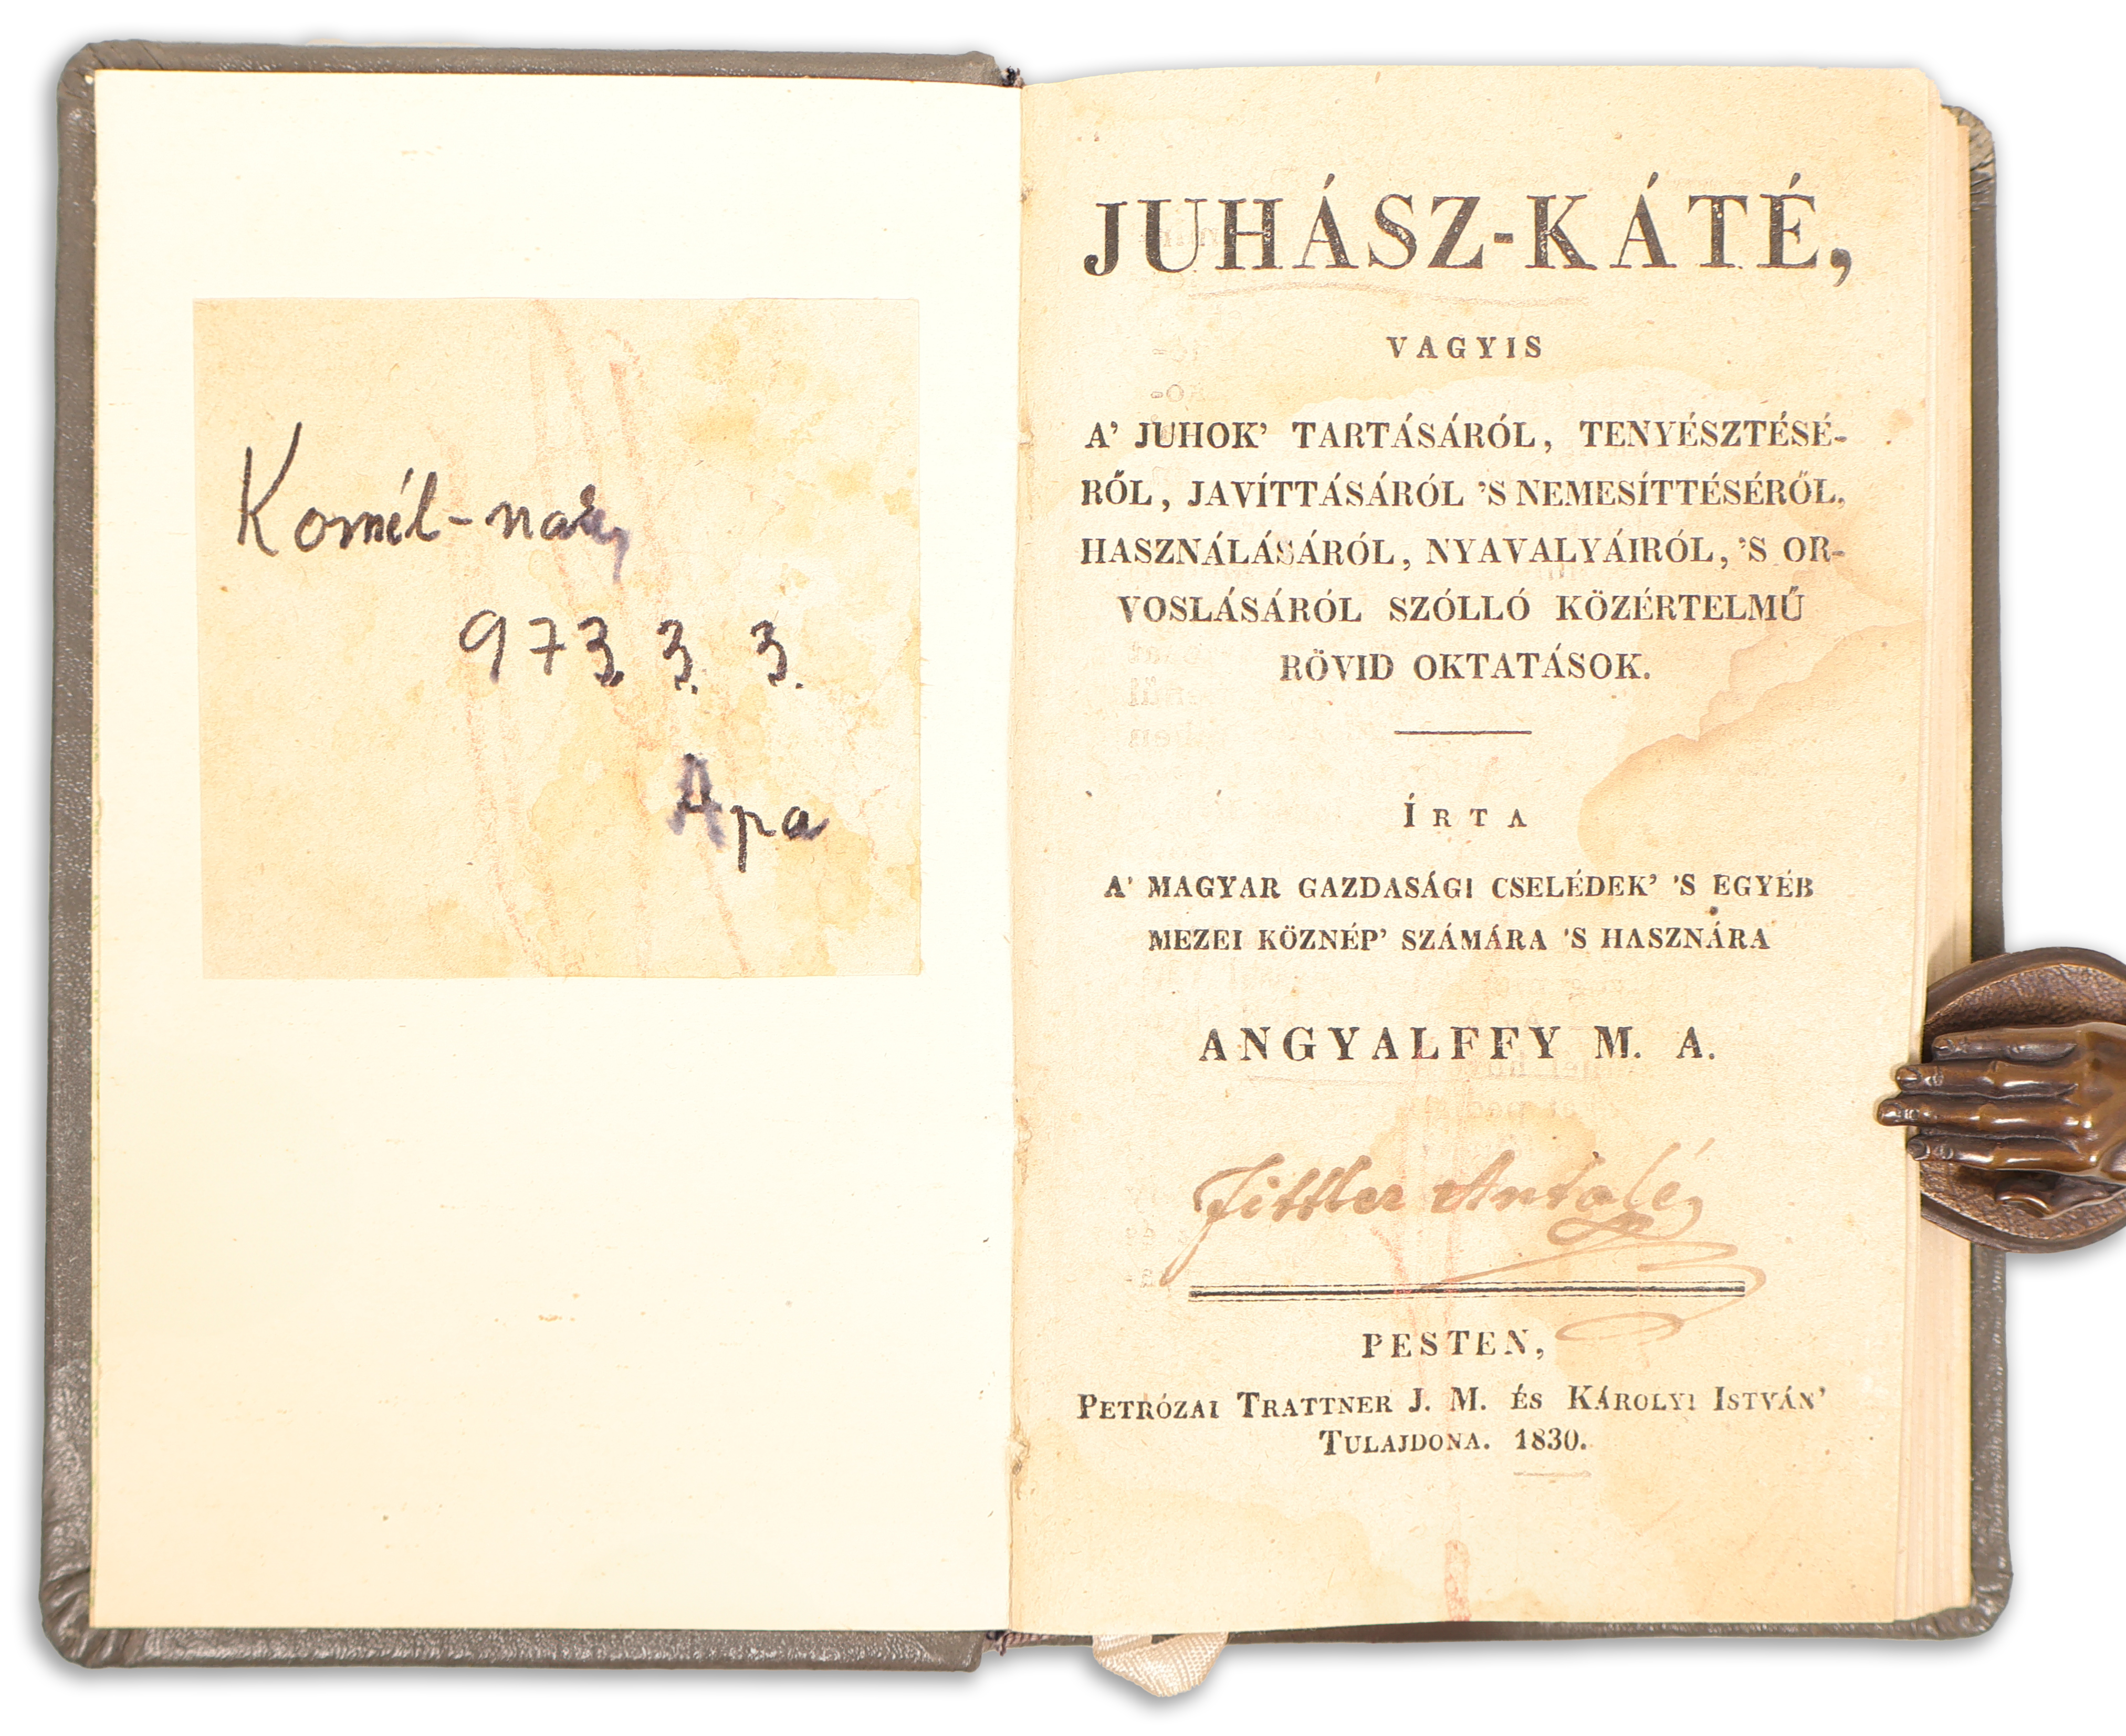 Kornél-nak
973. 3. 3.
Apa
JUHÁSZ-KÁTÉ,
VAGYIS
A' JUHOK' TARTÁSÁRÓL, TENYÉSZTÉSÉ-
RŐL, JAVÍTTÁSÁRÓL 'S NEMESÍTTÉSÉRŐL,
HASZNÁLÁSÁRÓL, NYAVALYÁIRÓL, 'S OR-
VOSLÁSÁRÓL SZÓLLÓ KÖZÉRTELMŰ
RÖVID OKTATÁSOK.
ÍRTA
A' MAGYAR GAZDASÁGI CSELÉDEK' 'S EGYÉB
MEZEI KÖZNÉP' SZÁMÁRA 'S HASZNÁRA
ANGYALFFY M. A.
Fittler Antalé
PESTEN,
PETRÓZAI TRATTNER J. M. ÉS KÁROLYI ISTVÁN'
TULAJDONA. 1830.